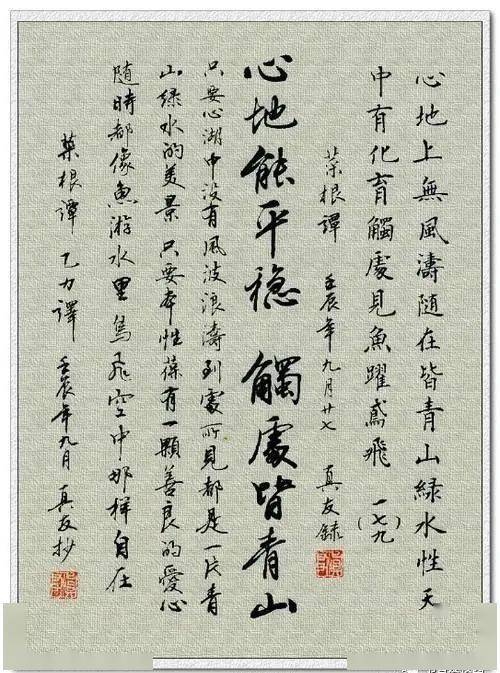 心地上無風濤隨在皆青山綠水性天
中有化育觸處見魚躍鳶飛 一七九
菜根譚 壬辰年九月廿七 真友錄
心地能平稳 觸處皆青山
只要心湖中没有風波浪濤到處所見都是一片青
山绿水的美景 只要本性葆有一顆善良的愛心
随時都像魚游水里鸢飛空中那样自在
菜根譚 乙力譯 壬辰年九月 真友抄